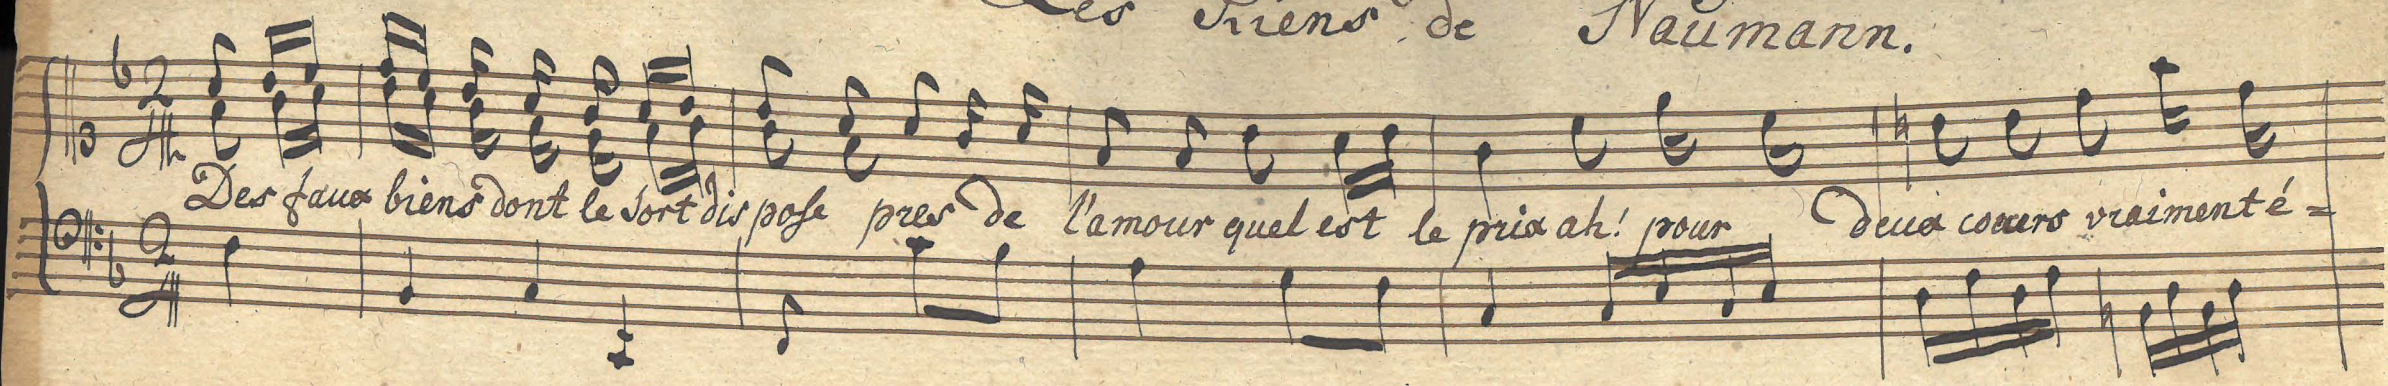 Les Riens de Naumann.
Des faux biens dont le sort dispose pres de l'amour quel est le prix ah! pour deux cœurs vraiment é=